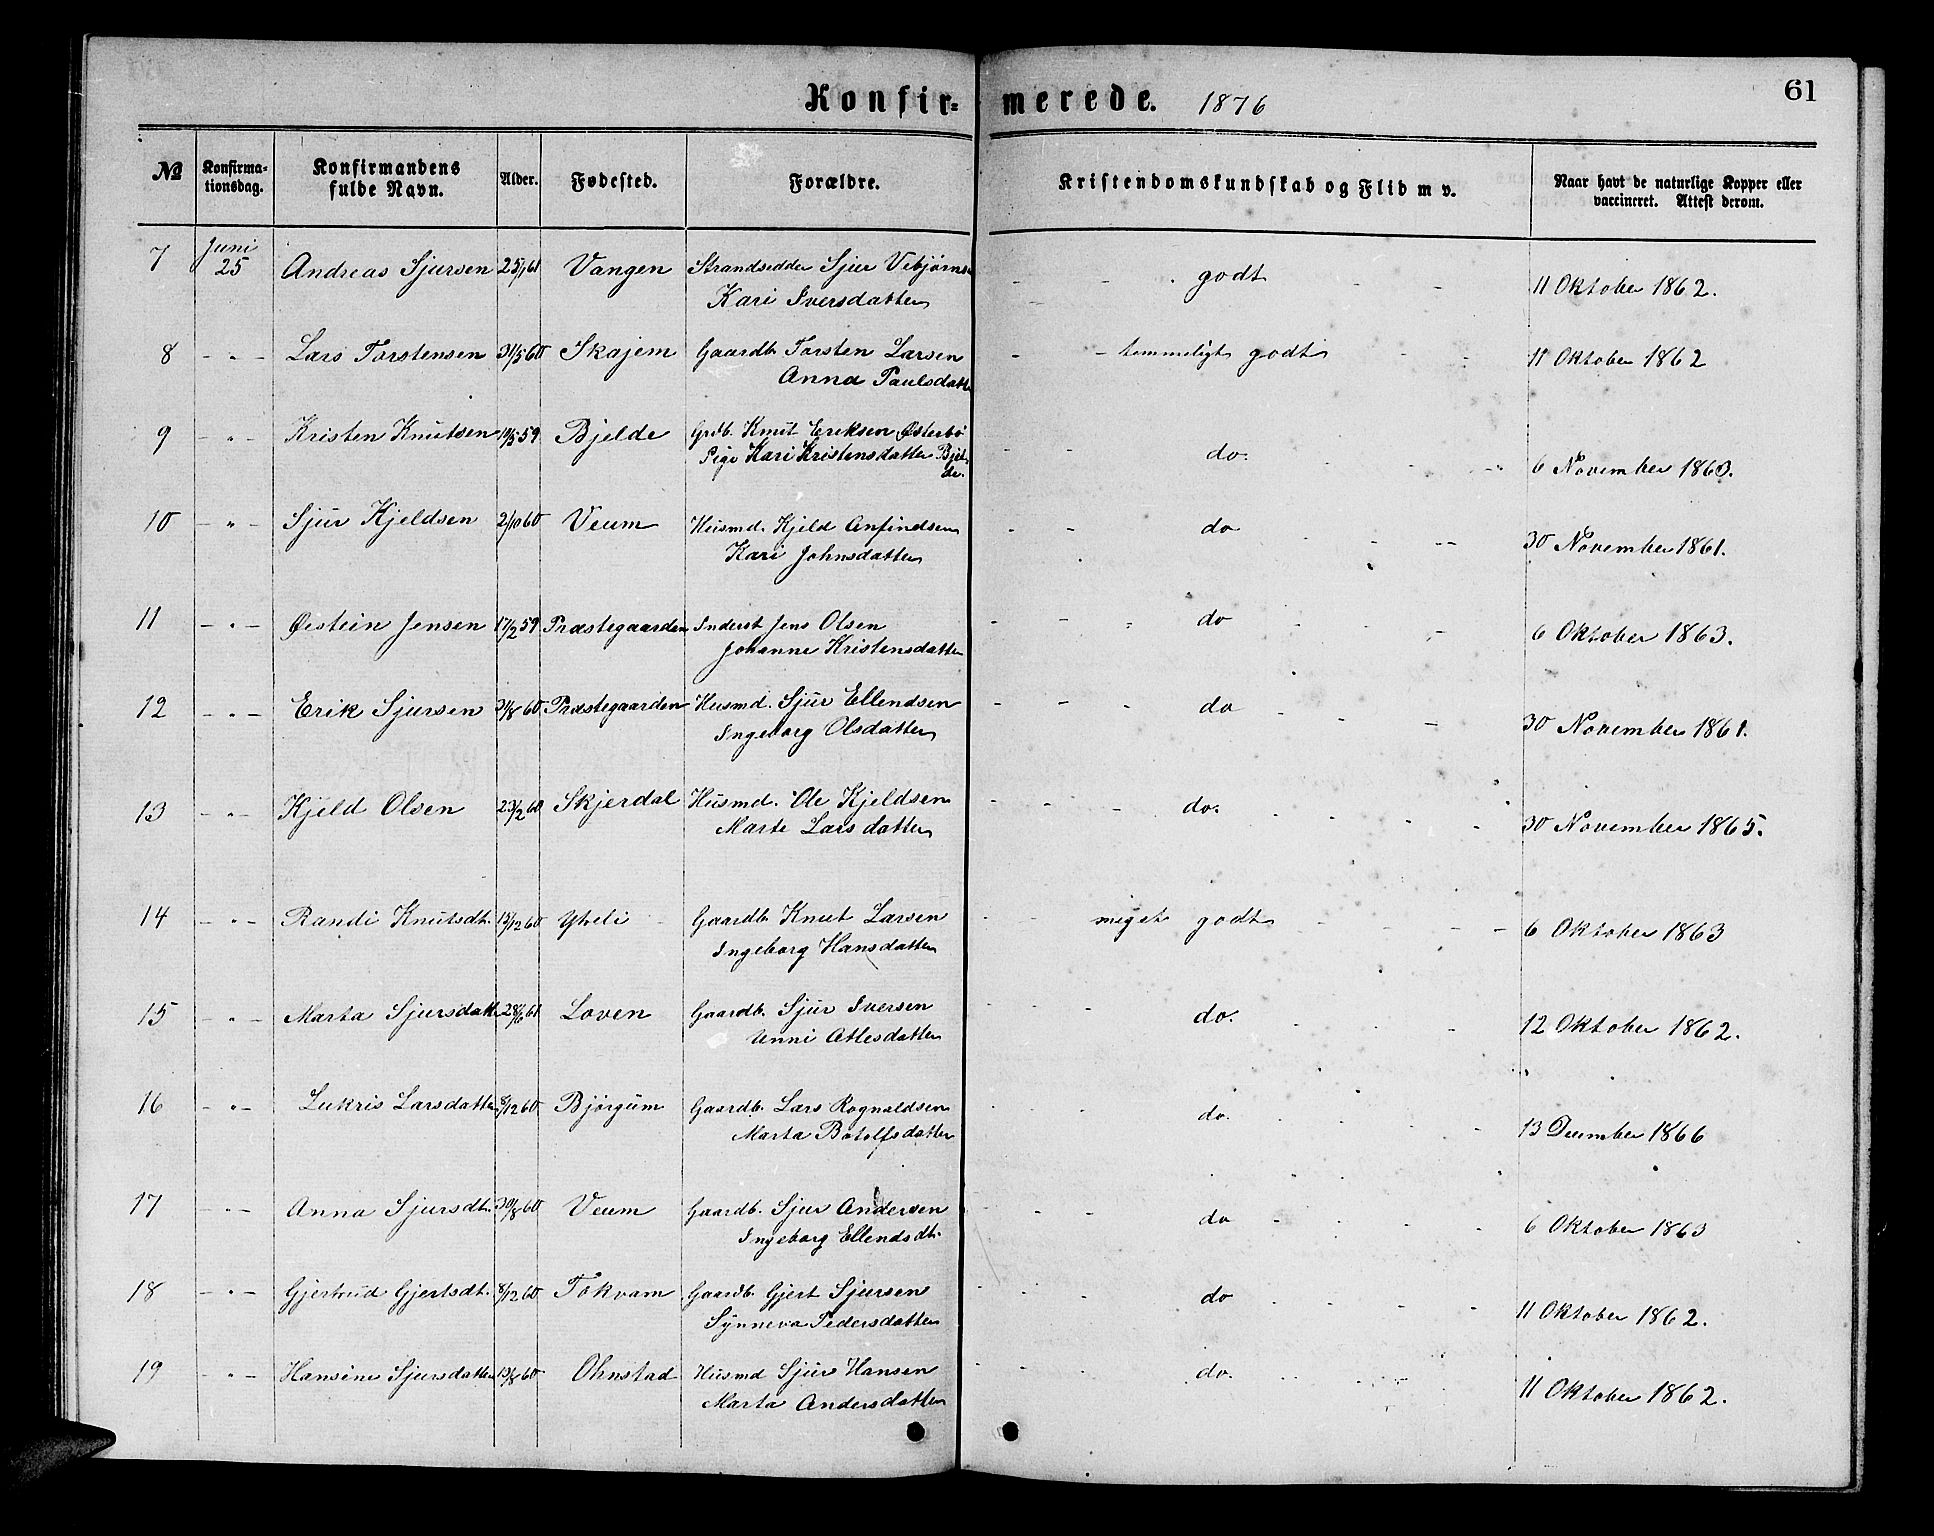 Konfirmerede. 1876
61
№ Konfirmationsdag. Konfirmandens fulde Navn. Alder. Fødested. Forældre. Kristendomskundskab og Flid m v. Naar havt de naturlige Kopper eller vaccineret. Attest derom.
7 Juni 25 Andreas Sjursen 61 Vangen Strandsidder Sjur Vibjørns godt 11 Oktober 1862.
Kari Iversdatter
8 - " - Lars Torstensen 31/5 60 Skajem Gaardb. Torsten Larsen temmeligt godt 11 Oktober 1862
Anna Paulsdatt
9 - " - Kristen Knutsen 19/5 59 Bjelde Grdb. Knut Eriksen Østerbø do. 6 November 1860.
Pige Kari Kristensdatter Bjel
de.
10 - " - Sjur Kjeldsen 2/10 60 Veum Husmd. Kjeld Anfindsen do 30 November 1861.
Kari Johnsdatter
11 - " - Øistein Jensen 17/2 59 Præstegaarden Inderst Jens Olsen do 6 Oktober 1863.
Johanne Kristensdatter
12 - " - Erik Sjursen 31/8 60 Præstegaarden Husmd. Sjur Ellendsen do 30 November 1861.
Ingeborg Olsdatter
13 - " - Kjeld Olsen 23/2 60 Skjerdal Husmd. Ole Kjeldsen do. 30 November 1865.
Marte Larsdatter
14 - " - Randi Knutsdt. 13/12 60 Ytreli Gaardb. Knut Larsen meget godt 6 Oktober 1863
Ingeborg Hansdatter
15 - " - Marta Sjursdatt. 28/6 61 Loven Gaardb. Sjur Iversen do. 12 Oktober 1862.
Unni Atlesdatter
16 - " - Lukris Larsdatter 8/12 60 Bjørgum Gaardb. Lars Rognaldsen do. 13 December 1866
Marta Botolfsdatter
17 - " - Anna Sjursdt. 30/8 60 Veum Gaardb. Sjur Andersen do 6 Oktober 1863
Ingeborg Ellendsdt.
18 - " - Gjertrud Gjertsdt. 8/12 60 Tokvam Gaardb. Gjert Sjursen do 11 Oktober 1862.
Synneva Pedersdatter
19 - " - Hansine Sjursdatter 13/8 60 Ohnstad Husmd Sjur Hansen do. 11 Oktober 1862.
Marta Andersdatter